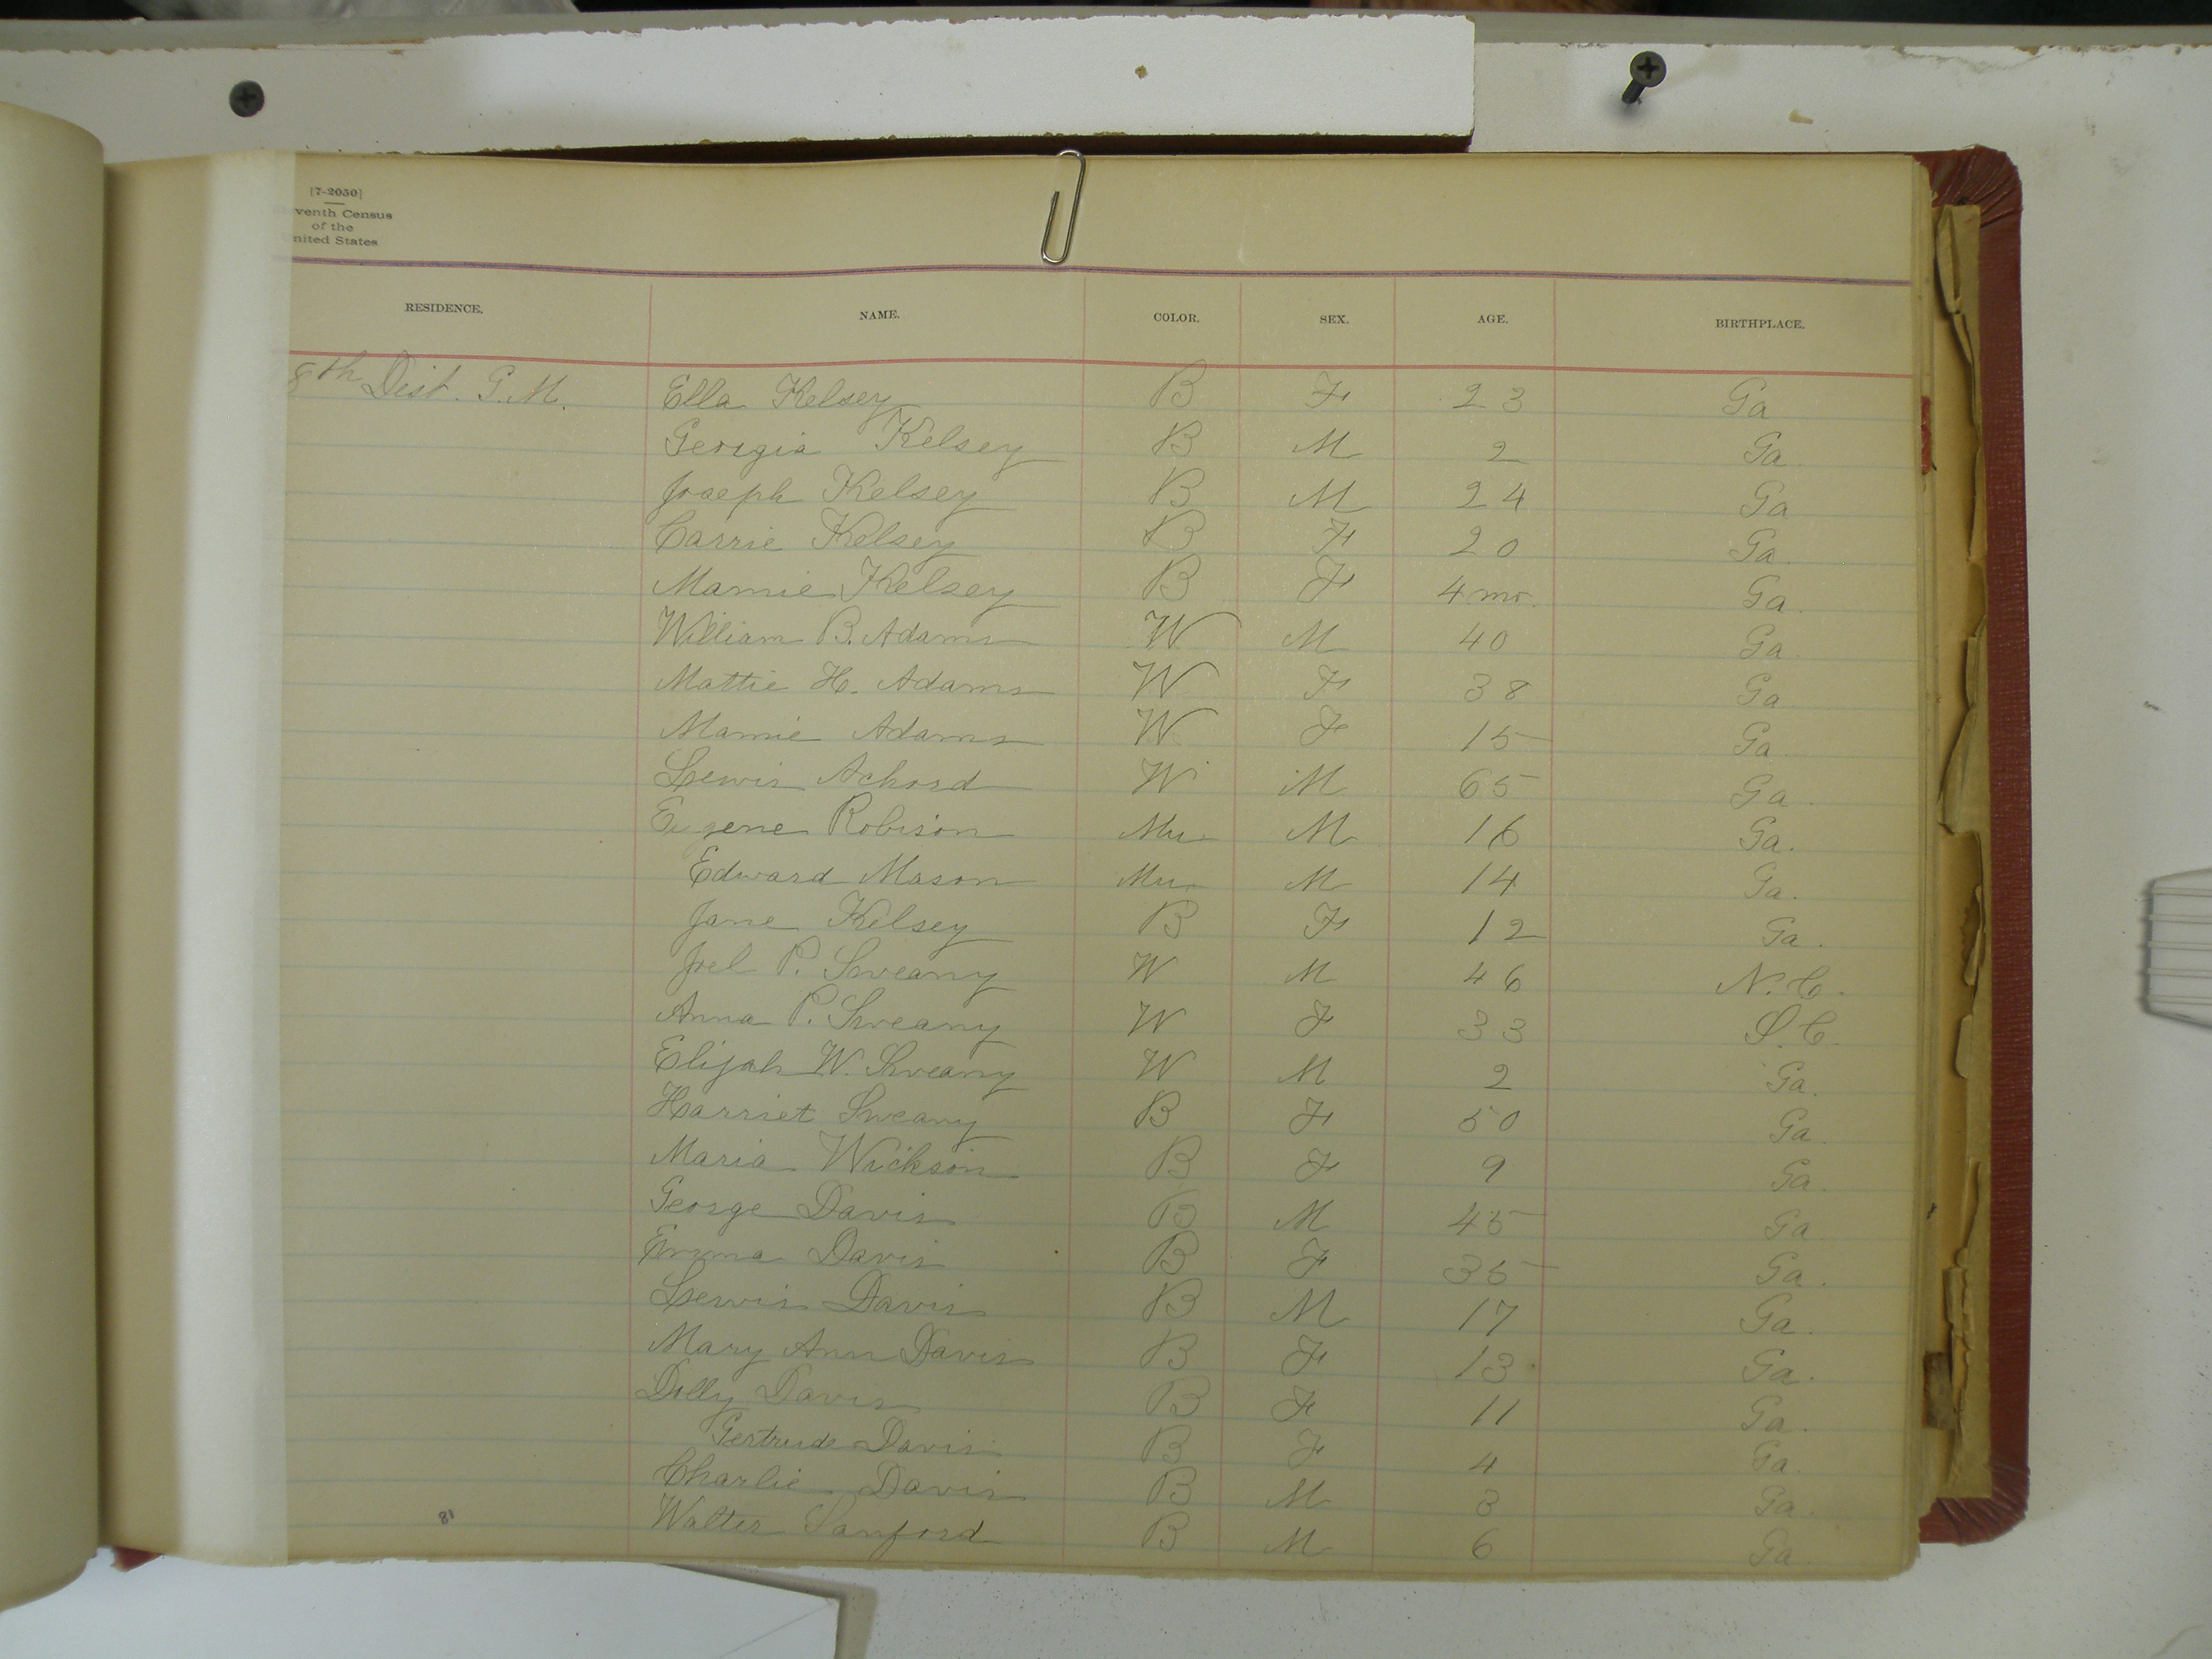 [7-2050]
venth Census
of the
nited States
RESIDENCE. NAME. COLOR. SEX. AGE. BIRTHPLACE.
8th Dist. G. M. Ella Kelsey B F 23 Ga
Georgia Kelsey B M 2 Ga.
Joseph Kelsey B M 24 Ga
Carrie Kelsey B F 20 Ga.
Mamie Kelsey B F 4 mo. Ga.
William B. Adams W M 40 Ga.
Mattie H. Adams W F 38 Ga
Mamie Adams W F 15 Ga.
Lewis Achord W M 65 Ga.
Eugene Robison Mu M 16 Ga.
Edward Mason Mu M 14 Ga.
Jane Kelsey B F 12 Ga.
Joel P. Sweany W M 46 N. C.
Anna P. Sweany W F 33 S. C.
Elijah W. Sweany W M 2 Ga.
Harriet Sweany B F 50 Ga.
Maria Wickson B F 9 Ga.
George Davis B M 45 Ga
Emma Davis B F 35 Ga.
Lewis Davis B M 17 Ga.
Mary Ann Davis B F 13 Ga.
Dolly Davis B F 11 Ga.
Gertrude Davis B F 4 Ga.
Charlie Davis B M 3 Ga.
Walter Sanford B M 6 Ga.
81